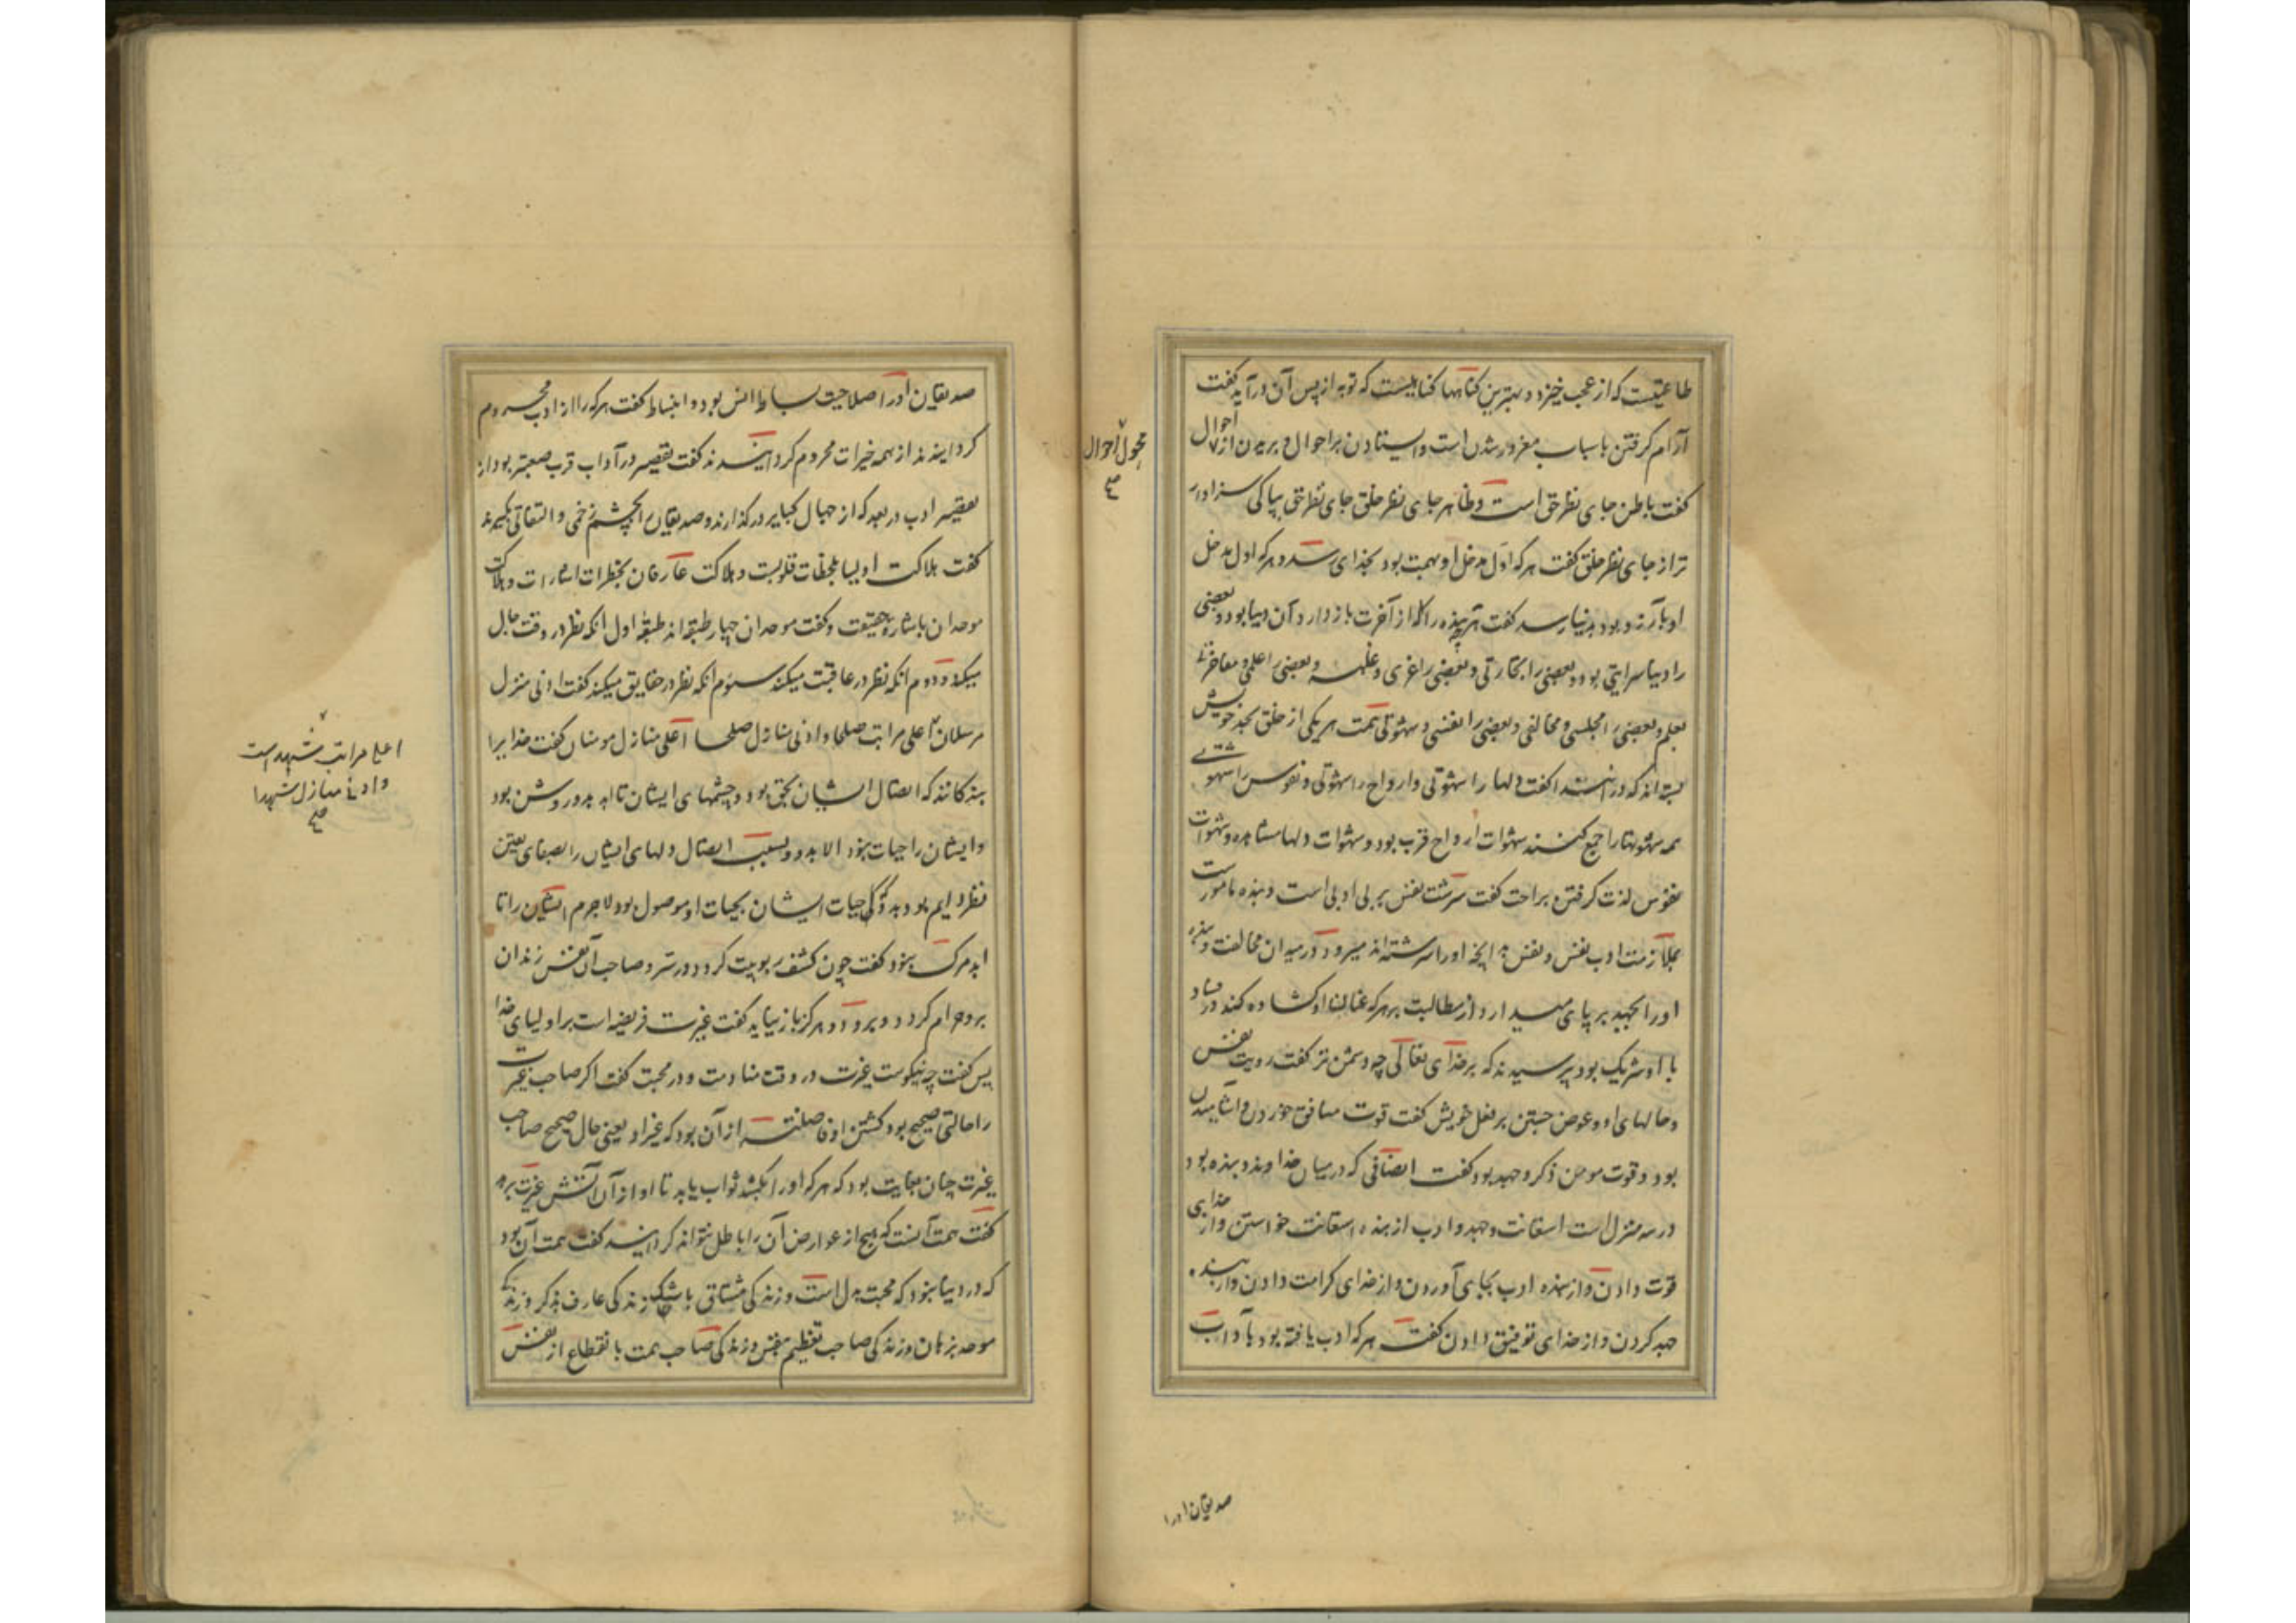 طاعتیست که از عجب خیزد و بهترین گناهها گناهیست که توبه از پس آن درآید گفت
آرام گرفتن باسباب مغرور شدن است و ایستادن بر احوال و بریدن از احوال
محول احوال
صح
گفت باطن جای نظر حق است و ظاهر جای نظر خلق جای نظر حق بپاکی سزاوار
تر از جای نظر خلق گفت هرکه اول مدخل او بهمت بود بخدای رسد و هرکه اول مدخل
او بآرزو بود بدنیا رسد گفت هرچه بنده را از آخرت باز دارد آن دنیا بود و بعضی
را دنیا سرایتی بود و بعضی را تجارتی و بعضی را عزی و غلبه و بعضی را علمی و مفاخرتی
بعلم و بعضی را مجلسی و مخالفی و بعضی را نفسی و شهوتی همت هر یکی از خلق بحد خویش
بسته‌اند که در آنند گفت دلها را شهوتی و ارواح را شهوتی و نفوس را شهوتی
همه شهوتها را جمع کنند شهوات ارواح قرب بود و شهوات دلها مشاهده و شهوات
نفوس لذت گرفتن براحت گفت سرشت نفس بر بی ادبی است و بنده مامورست
بملازمت ادب نفس و نفس بدانچه اورا سرشته‌اند میرود در میدان مخالفت و بنده
اورا بجهد بر پای میدارد از مطالبت بد هرکه عنان او گشاده کند در فساد
با او شریک بود پرسیدند که بر خدای تعالی چه دشمن‌تر گفت رویت نفس
و حالهای او و عوض جستن بر فعل خویش گفت قوت منافق خوردن و آشامیدن
بود و قوت مومن ذکر و جهد بود گفت انصافی که در میان خداوند و بنده بود
در سه منزل است استعانت و جهد و ادب از بنده استعانت خواستن و از خدای
قوت دادن و از بنده ادب بجای آوردن و از خدای کرامت دادن و از بنده
جهد کردن و از خدای توفیق دادن گفت هرکه ادب یافته بود بآداب
صدیقان اورا
صدیقان اورا صلاحیت بساط انس بود و انبساط گفت هرکه را از ادب محروم
گردانیدند از همه خیرات محروم گردانیدند گفت تقصیر در آداب قرب صعبتر بود از
تقصیر ادب در بعد که از جهال کبایر در گذارند و صدیقان را بچشم زخمی و التفاتی بگیرند
گفت هلاکت اولیا بلحظات قلوبست و هلاکت عارفان بخطرات اشارات و هلاکت
موحدان باشاره حقیقت و گفت موحدان چهار طبقه‌اند طبقه اول آنکه نظر در وقت حال
میکند و دوم آنکه نظر در عاقبت میکند سوم آنکه نظر در حقایق میکند گفت ادنی منزل
مرسلان اعلی مراتب صلحا و ادنی منازل صلحا اعلی منازل مومنان گفت خدایرا
اعلی مراتب شهداست
و ادنی منازل شهدا
صح
بندگانند که اتصال ایشان بحق بود و چشمهای ایشان تا ابد بدو روشن بود
و ایشان را حیات نبود الا بدو و بسبب اتصال دلهای ایشان را بصفای یقین
نظر دایم بود بدو که حیات ایشان بحیات او موصول بود لاجرم ایشان را تا
ابد مرگ نبود گفت چون کشف ربوبیت گردد در سر و صاحب آن نفس زند آن
برو حرام گردد و برود و هرگز باز نیاید گفت غیرت فریضه است بر اولیای خدا
پس گفت چه نیکوست غیرت در وقت منادمت و در محبت گفت اگر صاحب غیرت
را حالتی صحیح بود کشتن او فاضلتر از آن بود که غیر او یعنی حال صحیح صاحب
غیرت چنان بغایت بود که هرکه اورا بکشد ثواب یابد تا او از آن آتش غیرت برهد
گفت همت آنست که هیچ از عوارض آن را باطل نتواند گردانید گفت همت آن بود
که در دنیا نبود که محبت بدل است و زندگی مشتاقی باشک زندگی عارف بذکر و زندگی
موحد بزبان و زندگی صاحب تعظیم بنفس و زندگی صاحب همت بانقطاع از نفس